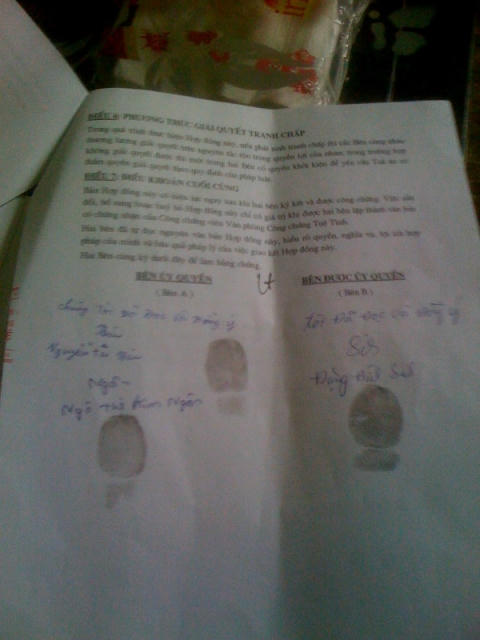 ĐIỀU 6: PHƯƠNG THỨC GIẢI QUYẾT TRANH CHẤP
Trong quá trình thực hiện Hợp đồng này, nếu phát sinh tranh chấp thì các Bên cùng nhau
thương lượng giải quyết trên nguyên tắc tôn trọng quyền lợi của nhau; trong trường hợp
không giải quyết được thì một trong hai bên có quyền khởi kiện để yêu cầu Toà án có
thẩm quyền giải quyết theo quy định của pháp luật.
ĐIỀU 7: ĐIỀU KHOẢN CUỐI CÙNG
Bản Hợp đồng này có hiệu lực ngay sau khi hai bên ký kết và được công chứng. Việc sửa
đổi, bổ sung hoặc huỷ bỏ Hợp đồng này chỉ có giá trị khi được hai bên lập thành văn bản
có chứng nhận của Công chứng viên Văn phòng Công chứng Tuệ Tĩnh.
Hai bên đã tự đọc nguyên văn bản Hợp đồng này, hiểu rõ quyền, nghĩa vụ, lợi ích hợp
pháp của mình và hậu quả pháp lý của việc giao kết Hợp đồng này.
Hai Bên cùng ký dưới đây để làm bằng chứng.
BÊN ỦY QUYỀN
( Bên A )
chúng tôi đã đọc và đồng ý
Nguyễn
Ngân
Ngô Thị Kim Ngân
BÊN ĐƯỢC ỦY QUYỀN
( Bên B )
Tôi đã đọc và đồng ý
Đặng